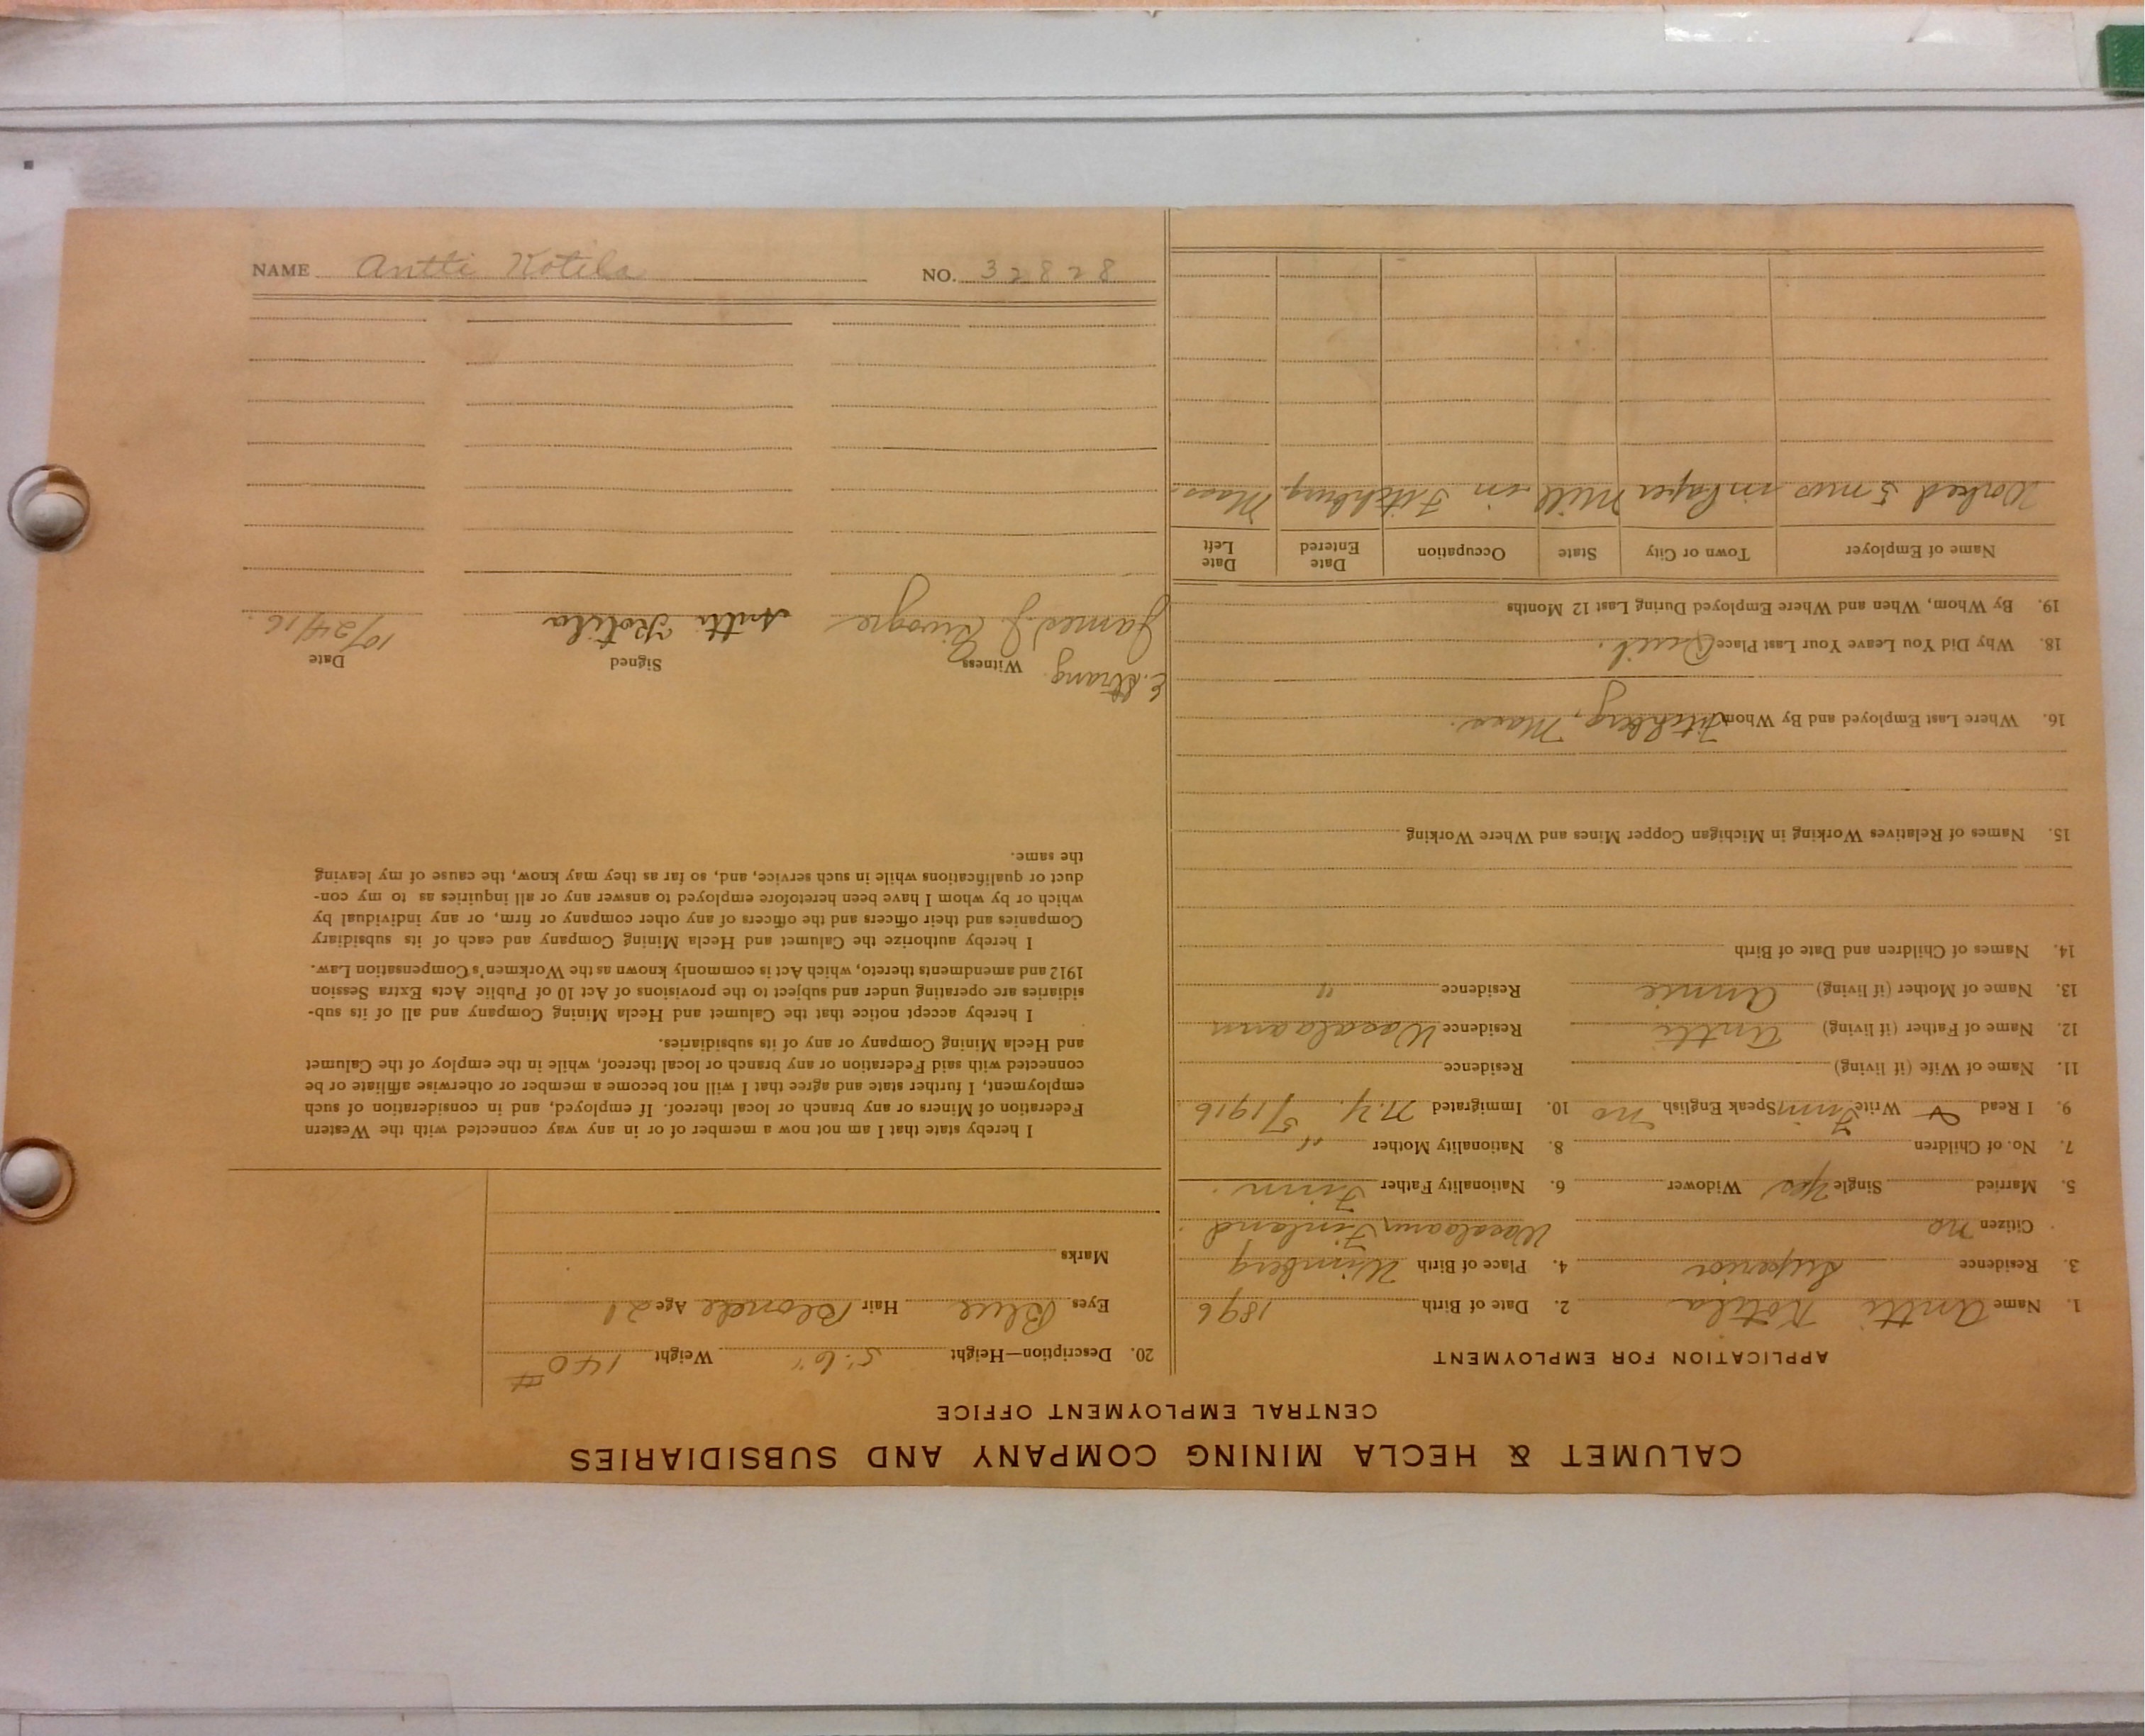 NAME Antti Kotila NO. 32828
CALUMET & HECLA MINING COMPANY AND SUBSIDIARIES
CENTRAL EMPLOYMENT OFFICE
APPLICATION FOR EMPLOYMENT
1. Name Antti Kotila 2. Date of Birth 1896
3. Residence Superior 4. Place of Birth
Citizen no Finland
5. Married Single Yes Widower 6. Nationality Father Finn
7. No. of Children 8. Nationality Mother "
9. I Read & Write Finn Speak English no 10. Immigrated N.Y. 5/1916
11. Name of Wife (if living) Residence
12. Name of Father (if living) Antti Residence
13. Name of Mother (if living) Annie Residence "
14. Names of Children and Date of Birth
15. Names of Relatives Working in Michigan Copper Mines and Where Working
16. Where Last Employed and By Whom Fitchberg, Mass.
18. Why Did You Leave Your Last Place Quit.
19. By Whom, When and Where Employed During Last 12 Months
Name of Employer Town or City State Occupation Date Entered Date Left
Worked 5 mos in Paper Mill in Fitchburg Mass.
20. Description—Height 5'6" Weight 140#
Eyes Blue Hair Blonde Age 21
Marks
I hereby state that I am not now a member of or in any way connected with the Western
Federation of Miners or any branch or local thereof. If employed, and in consideration of such
employment, I further state and agree that I will not become a member or otherwise affiliate or be
connected with said Federation or any branch or local thereof, while in the employ of the Calumet
and Hecla Mining Company or any of its subsidiaries.
I hereby accept notice that the Calumet and Hecla Mining Company and all of its sub-
sidiaries are operating under and subject to the provisions of Act 10 of Public Acts Extra Session
1912 and amendments thereto, which Act is commonly known as the Workmen's Compensation Law.
I hereby authorize the Calumet and Hecla Mining Company and each of its subsidiary
Companies and their officers and the officers of any other company or firm, or any individual by
which or by whom I have been heretofore employed to answer any or all inquiries as to my con-
duct or qualifications while in such service, and, so far as they may know, the cause of my leaving
the same.
E. Strang Witness Signed Date
James J. Antti Kotila 10/24/16.